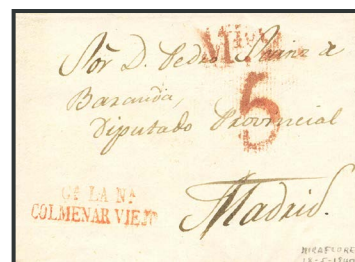 Sor D. Pedro Sainz de
Baranda,
Diputado Provincial
5
Madrid.
Ca LA Na
COLMENAR VIEJO
MIRAFLORES